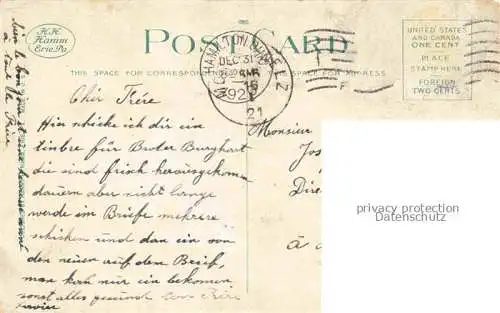 H.K.
Hamm
Erie, Pa.
POST CARD
THIS SPACE FOR CORRESPONDENCE
THIS SPACE FOR ADDRESS
UNITED STATES
AND CANADA
ONE CENT
PLACE
STAMP HERE
FOREIGN
TWO CENTS
DEC 31
21
Cher Frère
Hin schicke ich dir ein
timbre für Broter Burghart
die sind frisch herausgekomm
dauern aber nicht lange
werde im Briefe mehrere
schicken und dan ein von
den neuen auf den Brief,
man koch nur ein bekomen
sonst alles gesund
Xavier
Monsieur
Jos
Dire
à
privacy protection
Datenschutz